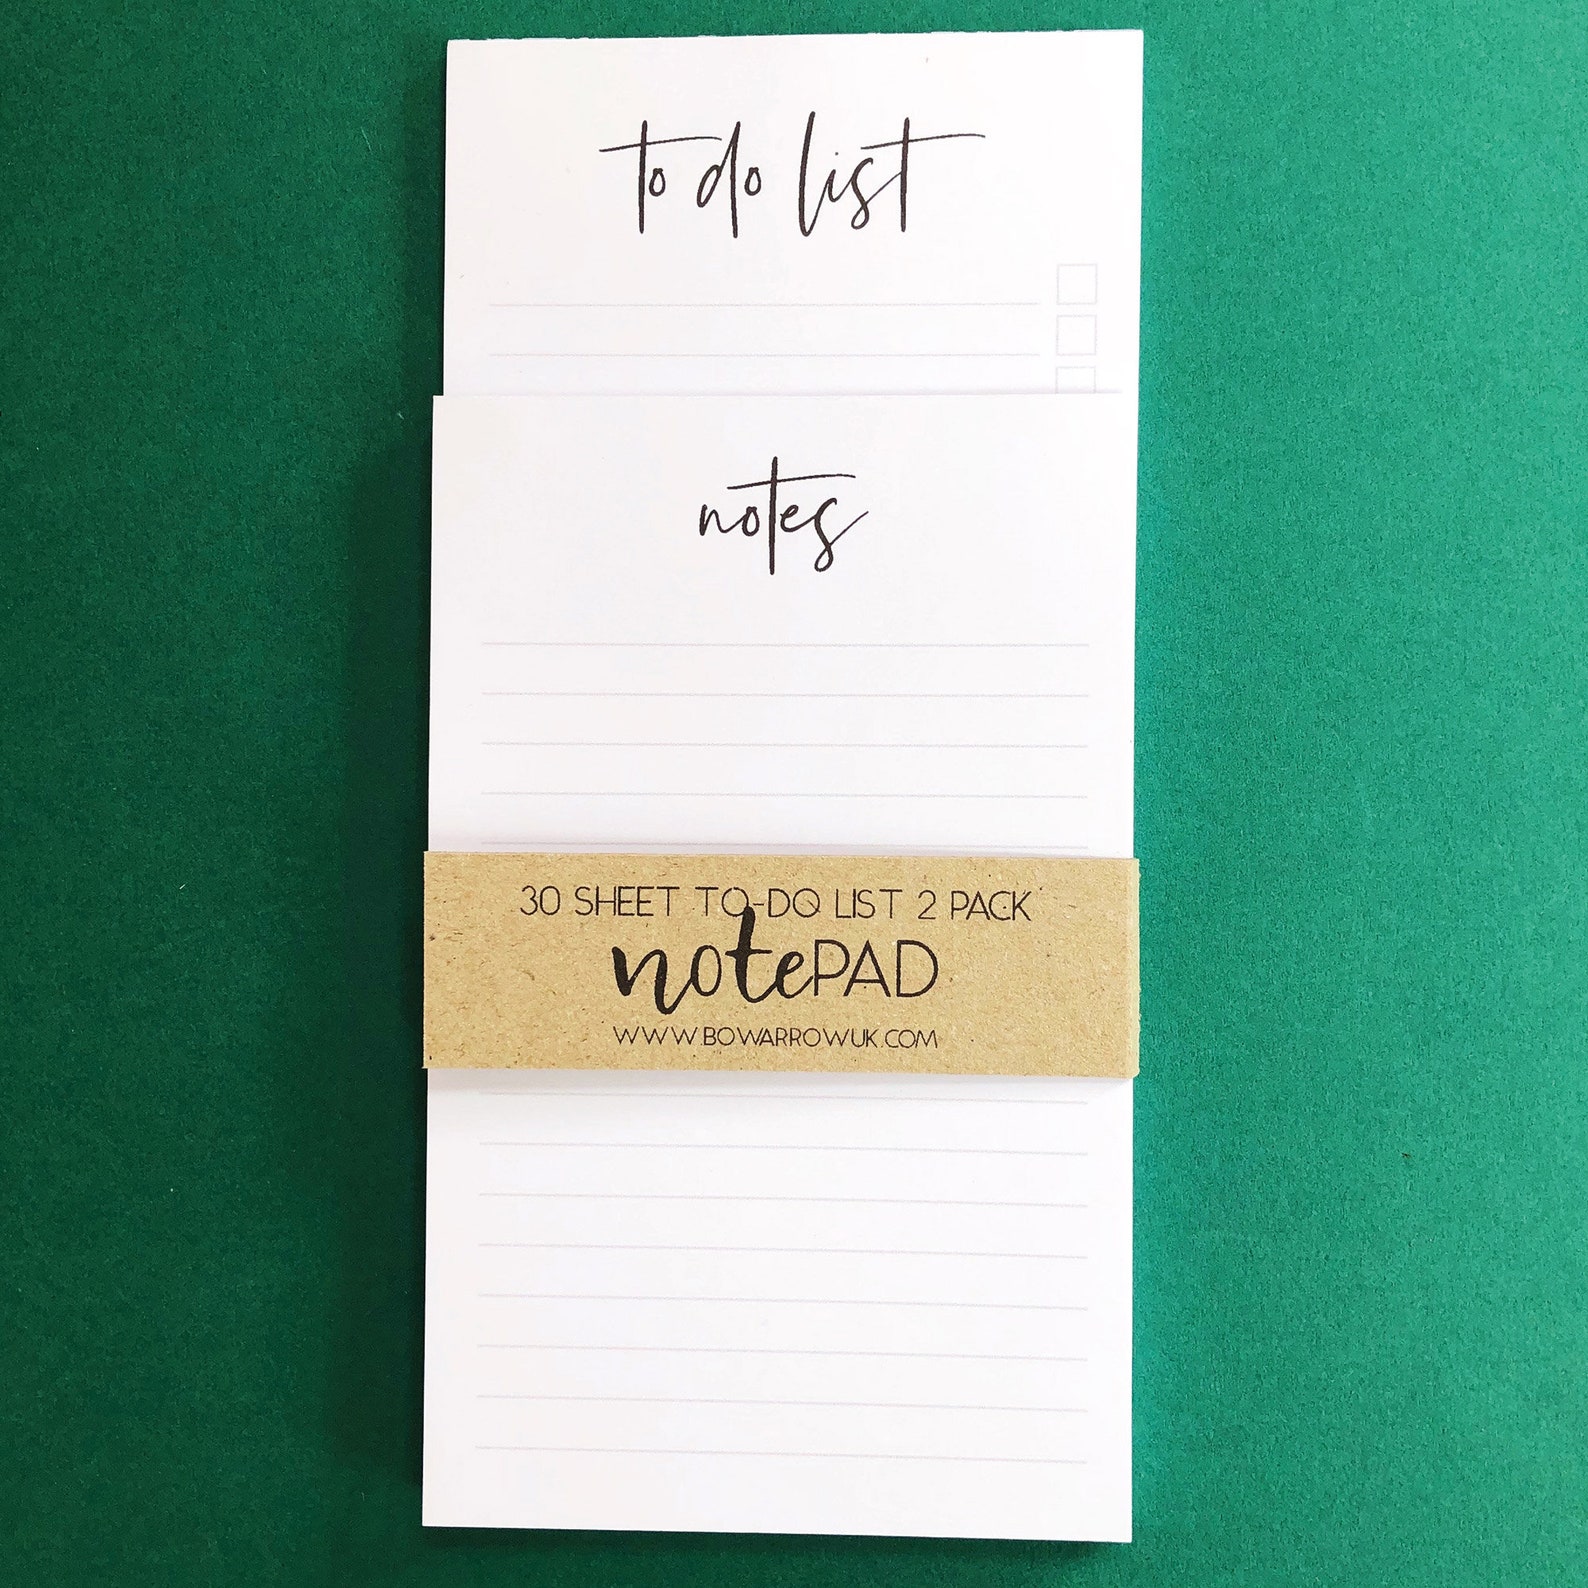 to do list
notes
30 SHEET TO-DO LIST 2 PACK
notePAD
WWW.BOWARROWUK.COM